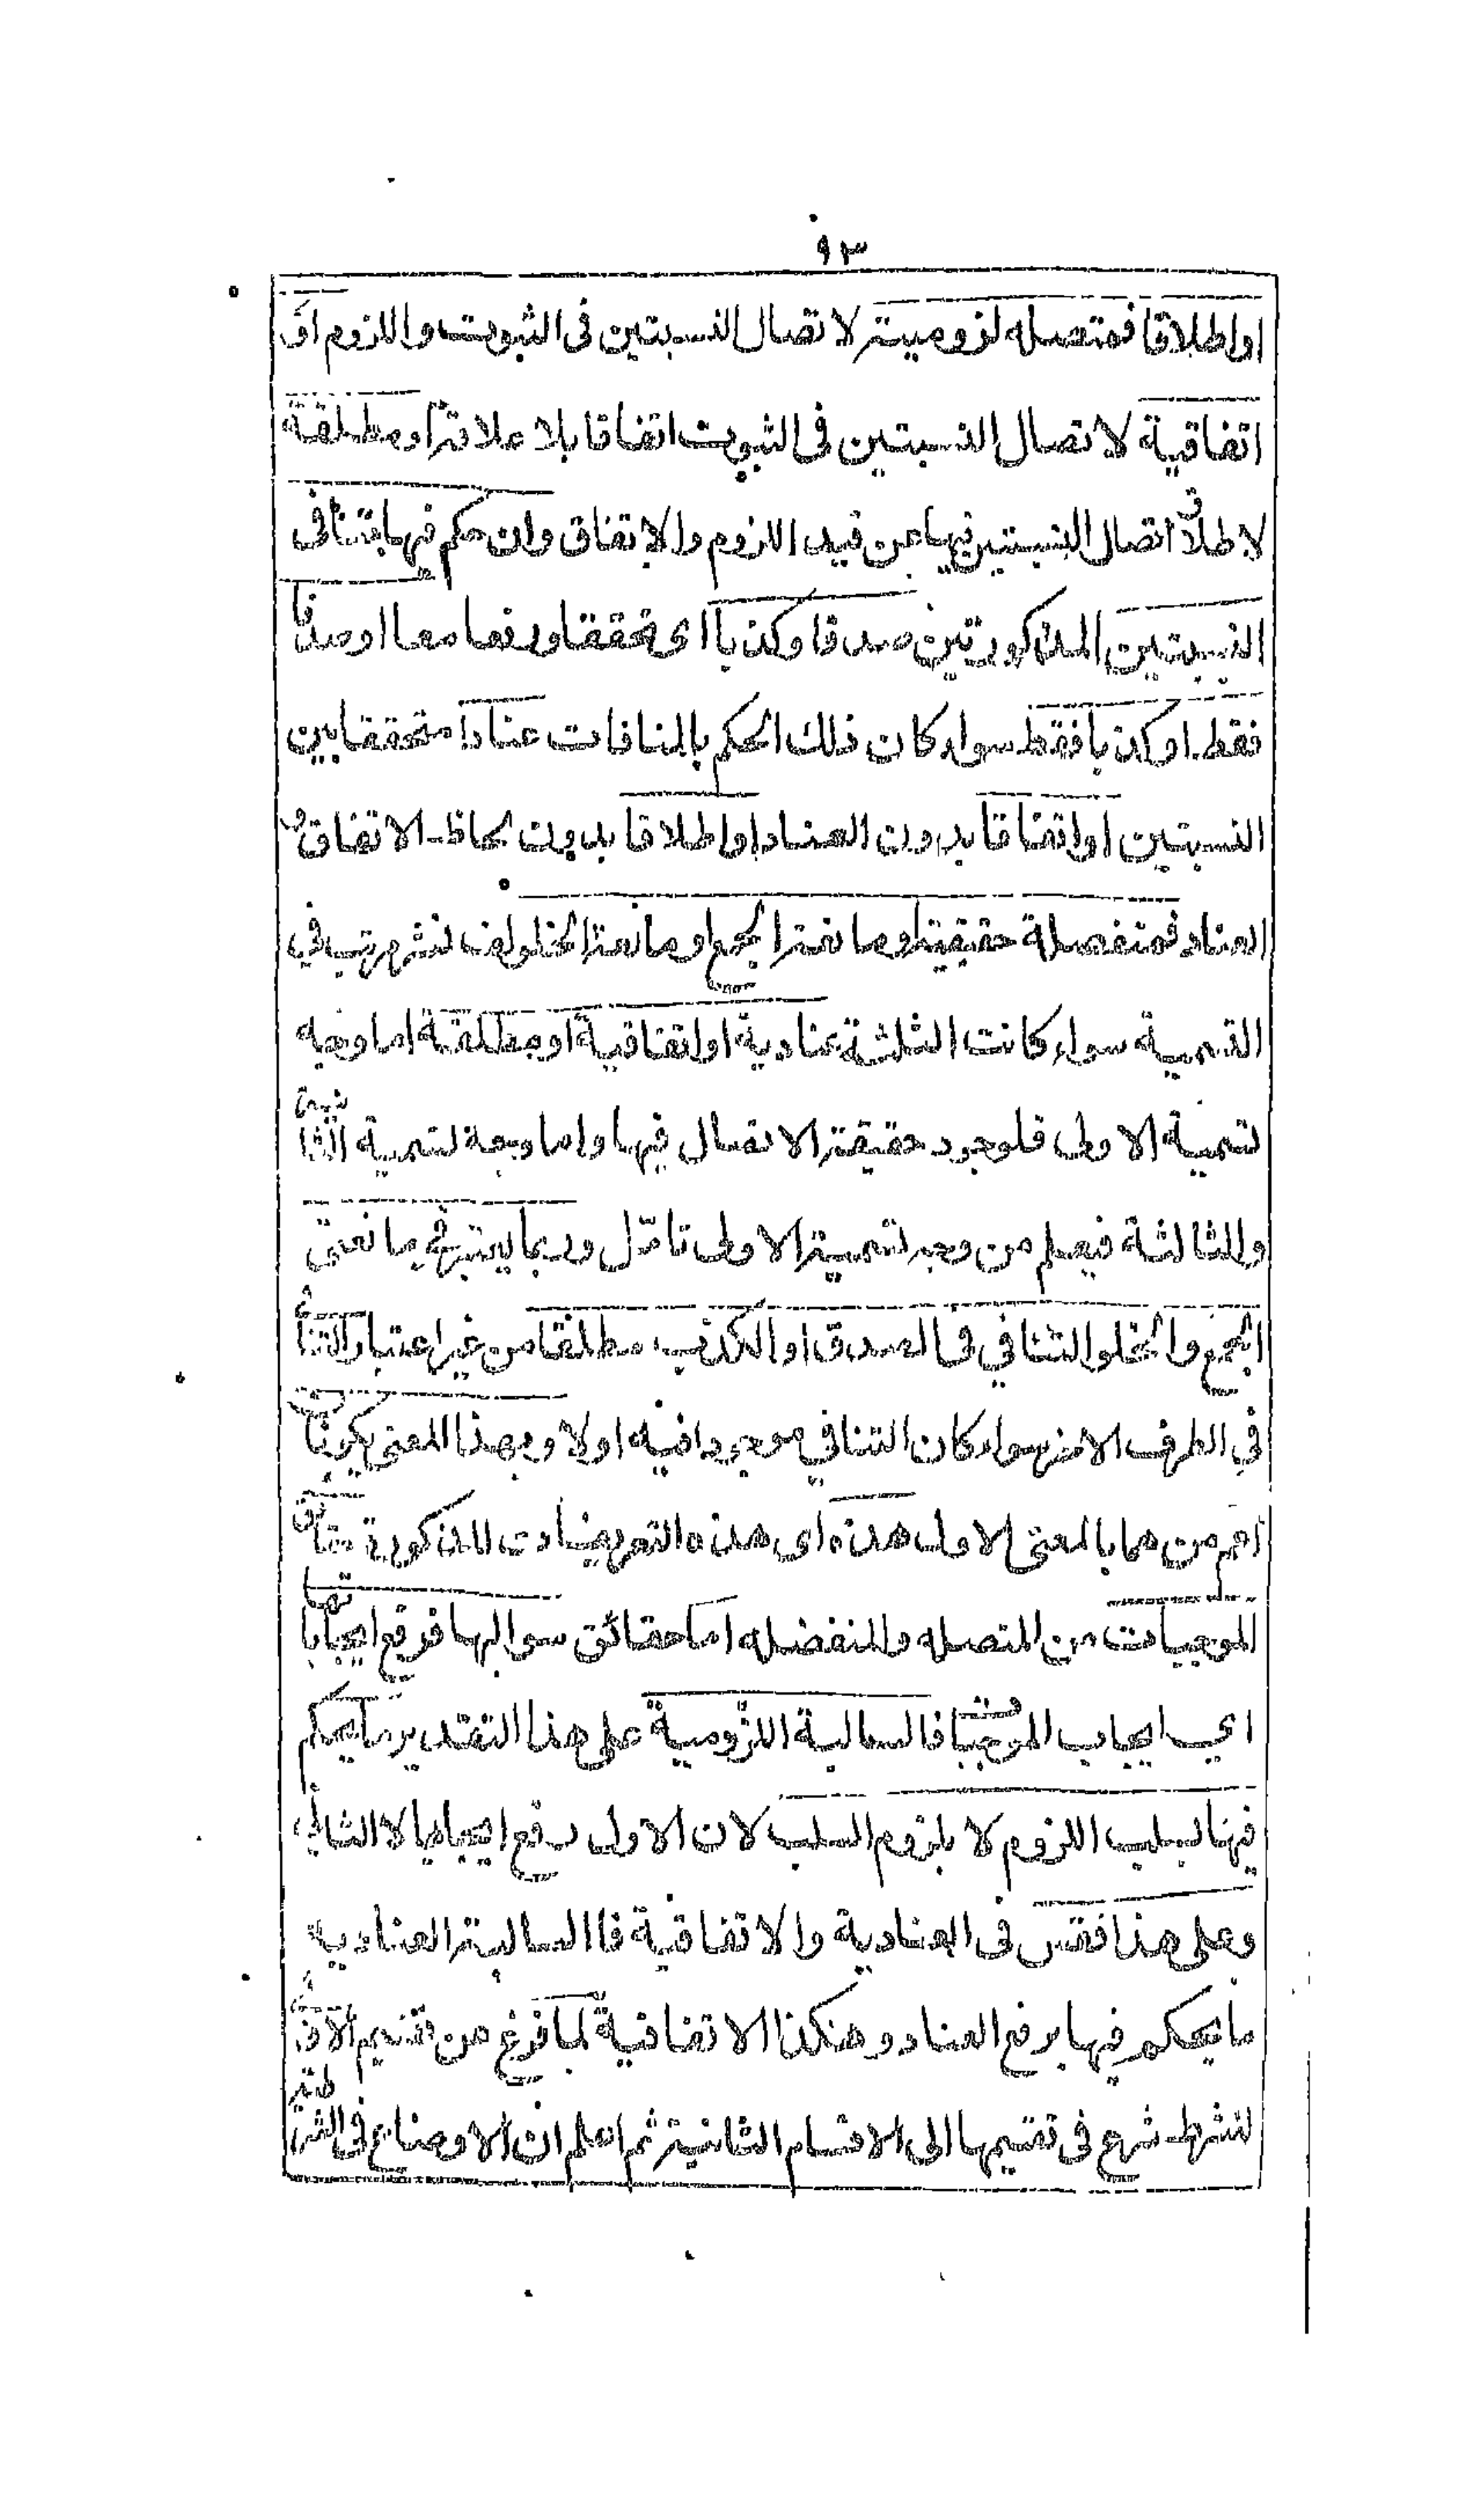 ٩٣
او اطلاقا فمتصله لزوميتر لاتصال النسبتين فى الثبوت واللزوم او
اتفاقية لاتصال النسبتين فى الثبوت اتفاقا بلا علاقة او مطلقة
لاطلاق اتصال النسبتين فيها عن قيد اللزوم والاتفاق وان حكم فيها بتنافى
النسبتين المذكورتين صدقا وكذبا اى تحققا ورفعا معا او صدقا
فقط او كذبا فقط سواء كان ذلك الحكم بالمنافات عنادا متحققا بين
النسبتين او اتفاقا بدون العناد او اطلاقا بدون لحاظ الاتفاق و
العناد فمنفصلة حقيقية او مانعة الجمع او مانعة الخلو لف نشر مرتب في
التسمية سواء كانت الثلثة عنادية او اتفاقية او مطلقة اما وجه
تسمية الاولى فلوجود حقيقة الانفصال فيها واما وجه لتسمية الثانية
والثالثة فيعلم من وجه تسمية الاولى تامّل وربما يعتبر في مانعتى
الجمع والخلو التنافي فى الصدق او الكذب مطلقا من غير اعتبار التنافى
في الطرف الاخر سواء كان التنافي موجودا فيه اولا وبهذا المعنى يكونان
اعم من هما بالمعنى الاول هذه اى هذه التعريفات المذكورة حقائق
الموجبات من المتصله والمنفصله اما حقائق سوالبها فرفع ايجاباتها
اي ايجاب الموجبات فالسالبة اللزومية على هذا التقدير ما يحكم
فيها بسلب اللزوم لا بلزوم السلب لان الاول رفع ايجابها لا الثاني
وعلى هذا فقس فى العنادية والاتفاقية فاالسالبة العنادية
ما يحكم فيها برفع العناد وهكذا الاتفاقية لما فرغ من تقسيم الاولى
لشرط شرع فى تقسيمها الى الاقسام الثانية ثم اعلم ان الاوضاع فى الشرطية